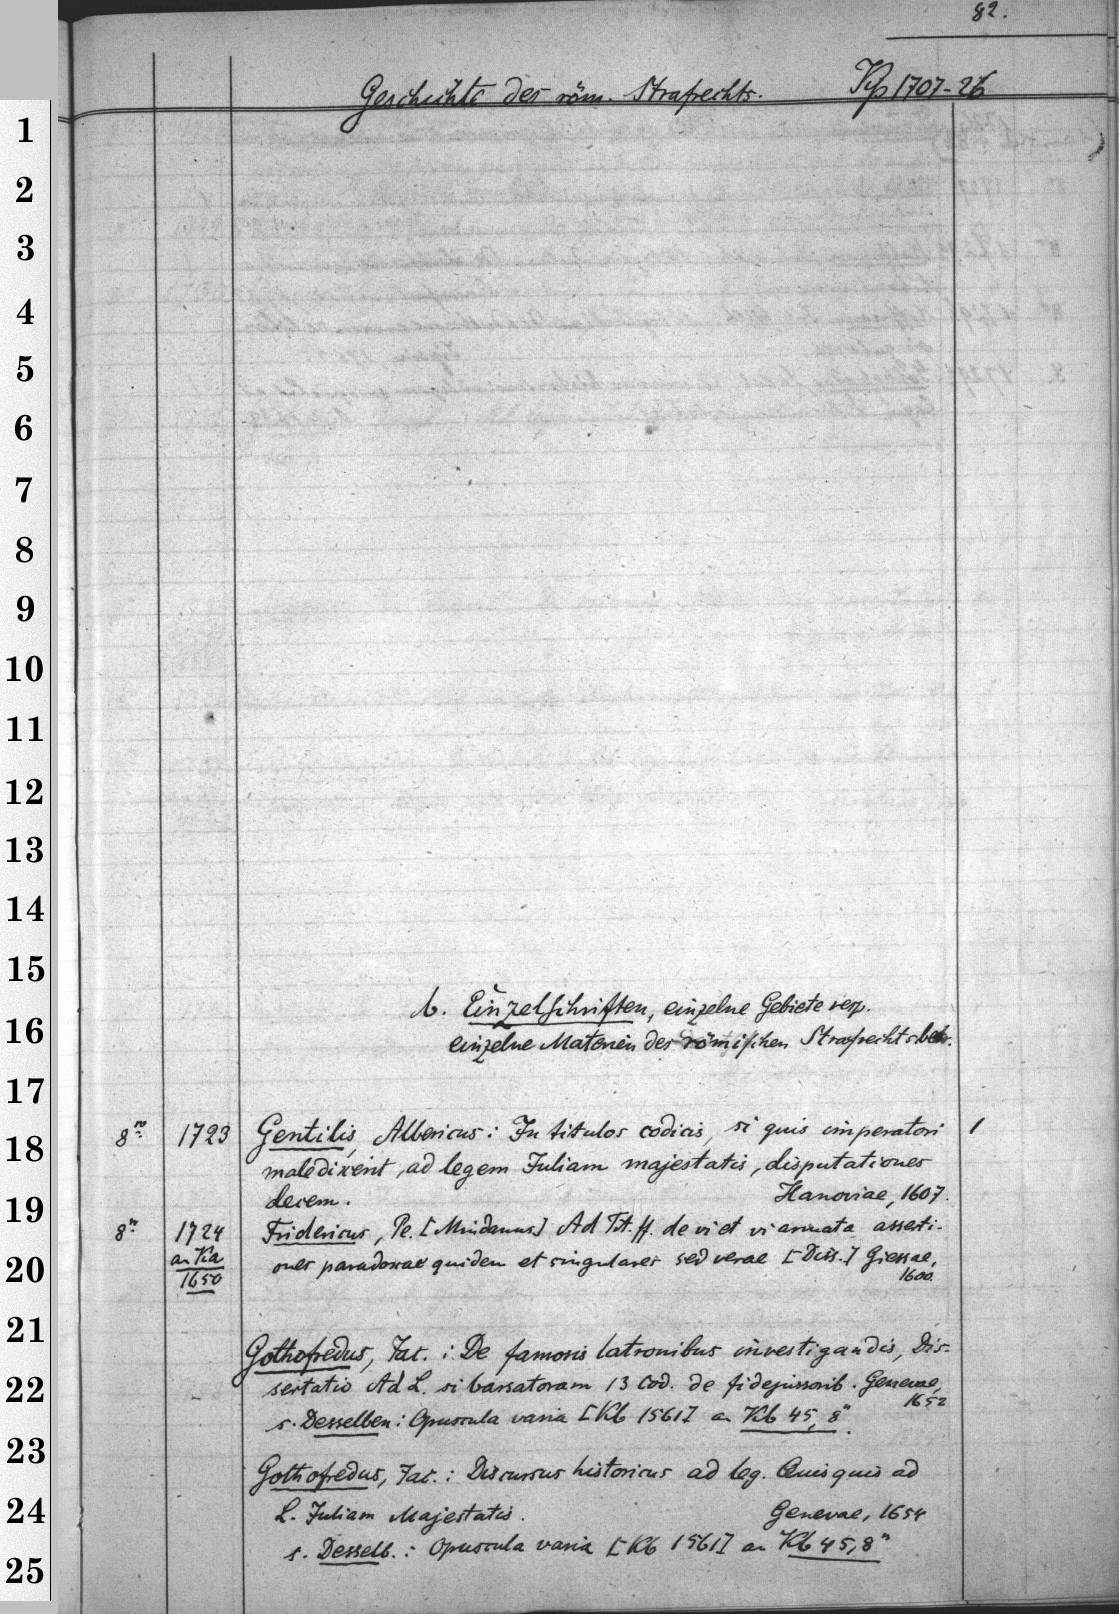 82.
Geschichte des röm. Strafrechts. Kp 1707-26
1
2
3
4
5
6
7
8
9
10
11
12
13
14
15
b. Einzelschriften, einzelne Gebiete resp.
16
einzelne Materien des römischen Strafrechts betr.
17
8º 1723 Gentilis, Albericus: In titulos codicis, si quis imperatori 1
18
maledixerit, ad legem Juliam majestatis, disputationes
decem. Hanoviae, 1607.
19
8º 1724 Fridericus, Pe. [Mindanus] Ad Tit. ff. de vi et vi armata asserti-
an Ka ones paradoxae quidem et singulares sed verae [Diss.] Giessae,
20
1650 1600.
21
Gothofredus, Jac.: De famosis latronibus investigandis, Dis-
22
sertatio Ad L. si barsatoram 13 Cod. de fidejussorib. Genevae,
1652
s. Desselben: Opuscula varia [Kb 1561] an Kb 45, 8º.
23
Gothofredus, Jac.: Discursus historicus ad leg. Quisquis ad
24
L. Juliam Majestatis. Genevae, 1654
s. Desselb.: Opuscula varia [Kb 1561] an Kb 45, 8º
25